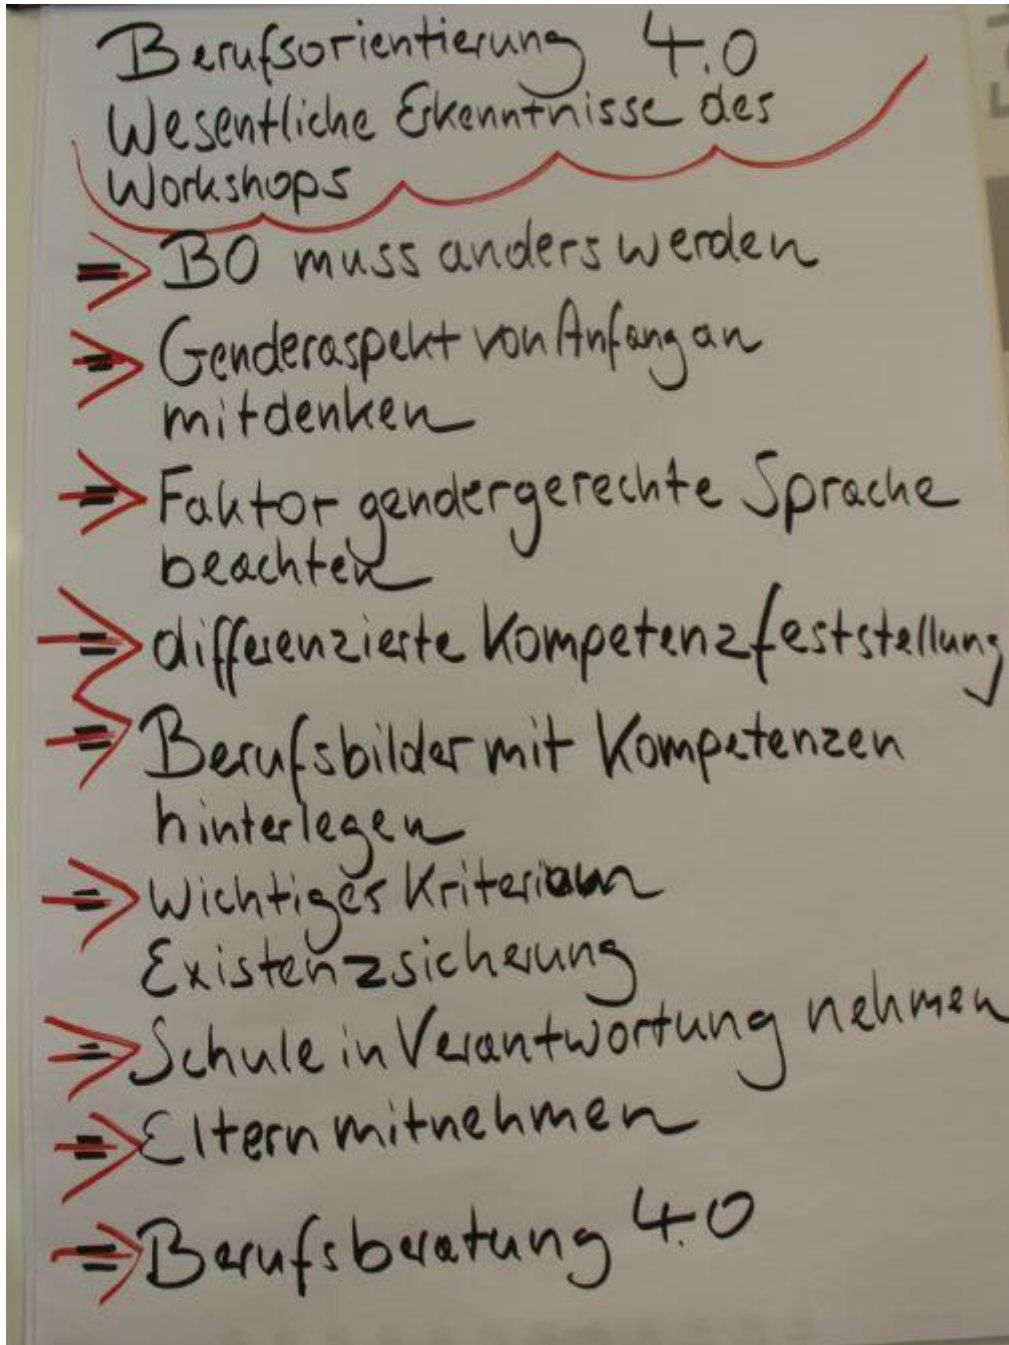 Berufsorientierung 4.0
Wesentliche Erkenntnisse des
Workshops
BO muss anders werden
Genderaspekt von Anfang an
mitdenken
Faktor gendergerechte Sprache
beachten
differenzierte Kompetenzfeststellung
Berufsbilder mit Kompetenzen
hinterlegen
Wichtiges Kriterium
Existenzsicherung
Schule in Verantwortung nehmen
Eltern mitnehmen
Berufsberatung 4.0